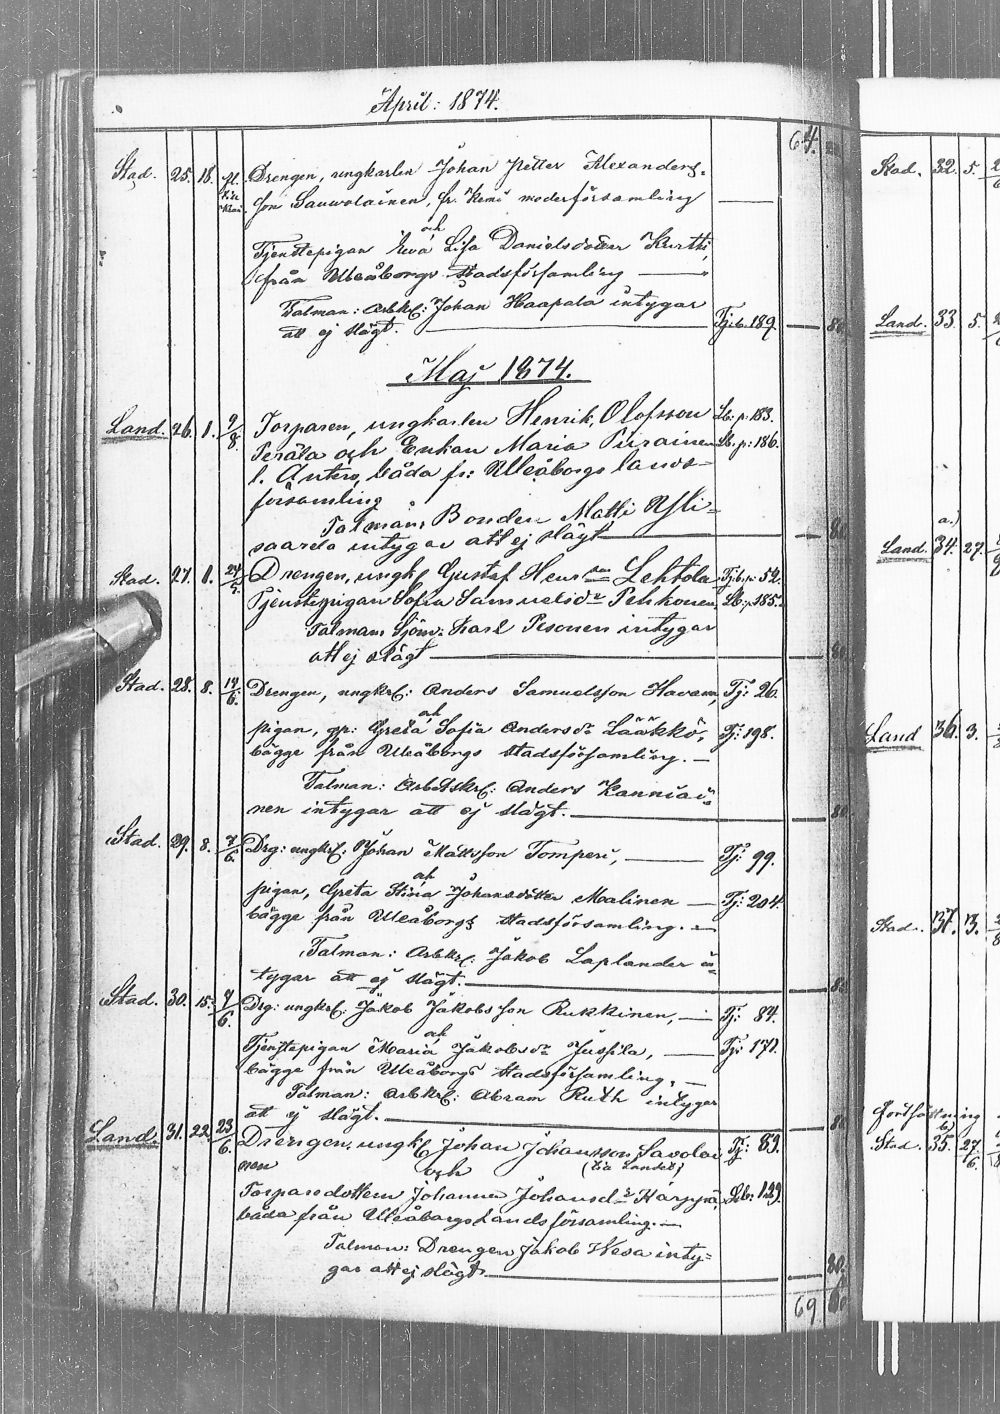 April: 1874.
64.
Stad. 25. 18. Drengen, ungkarlen Johan Petter Alexanders-
son Sauwolainen, fr. Kemi moderförsamling
och
Tjenstepigan Ewa Lisa Danielsdotter Kurtti,
från Uleåborgs Stadsförsamling
Talman: Arbkl: Johan Haapala intygar
att ej slägt. Tjb. 189. 80
Maj 1874.
Land. 26. 1. 9/8 Torparen, ungkarlen Henrik Olofsson Lb: p: 183.
Perälä och Enkan Maria Piirainen Lb: p: 186.
l. Antero, båda fr: Uleåborgs lands-
församling
Talman, Bonden Matti Yli-
saarela intygar att ej slägt 80
Stad. 27. 1. 24/5. Drengen, ungk. Gustaf Henrsson Lehtola Tjb: p: 52.
Tjenstepigan Sofia Samuelsdr Pehkonen, Lb: p: 185.
Talman Sjöm: Karl Pesonen intygar
att ej slägt 80
Stad. 28. 8. 14/6. Drengen, ungkrl: Anders Samuelsson Havana, Tj: 26.
och
pigan, qp: Greta Sofia Andersdr Lääkkö, Tj: 198.
bägge från Uleåborgs Stadsförsamling.
Talman: Arbetskrl: Anders Kanniai-
nen intygar att ej slägt. 80
Stad. 29. 8. 7/6. Drg: ungkrl: Johan Mattsson Tomperi, Tj: 99.
och
pigan, Greta Stina Johansdotter Maalinen Tj: 204
bägge från Uleåborgs Stadsförsamling.
Talman: Arbkrl: Jakob Laplander in-
tygar att ej slägt. 80
Stad. 30. 15. 7/6. Drg: ungkrl: Jakob Jakobsson Rukkinen, Tj: 84.
och
Tjenstepigan Maria Jakobsdr Jussila, Tj: 171.
bägge från Uleåborgs Stadsförsamling.
Talman: Arbkrl: Abram Ruth intygar
att ej slägt. 80
Land. 31. 22. 23/6. Drengen, ungk. Johan Johansson Savolai- Tj: 83.
nen och
Torparedottern Johanna Johansdr Härppä, Lb: 129.
båda från Uleåborgs Landsförsamling.
Talman: Drengen Jakob Wesa inty-
gar att ej slägt 80.
69
Stad. 32. 5.
Land. 33. 5.
a.)
Land. 34. 27.
Land 36. 3.
Stad. 37. 13.
Fortsättning
b)
Stad. 35. 27/6.